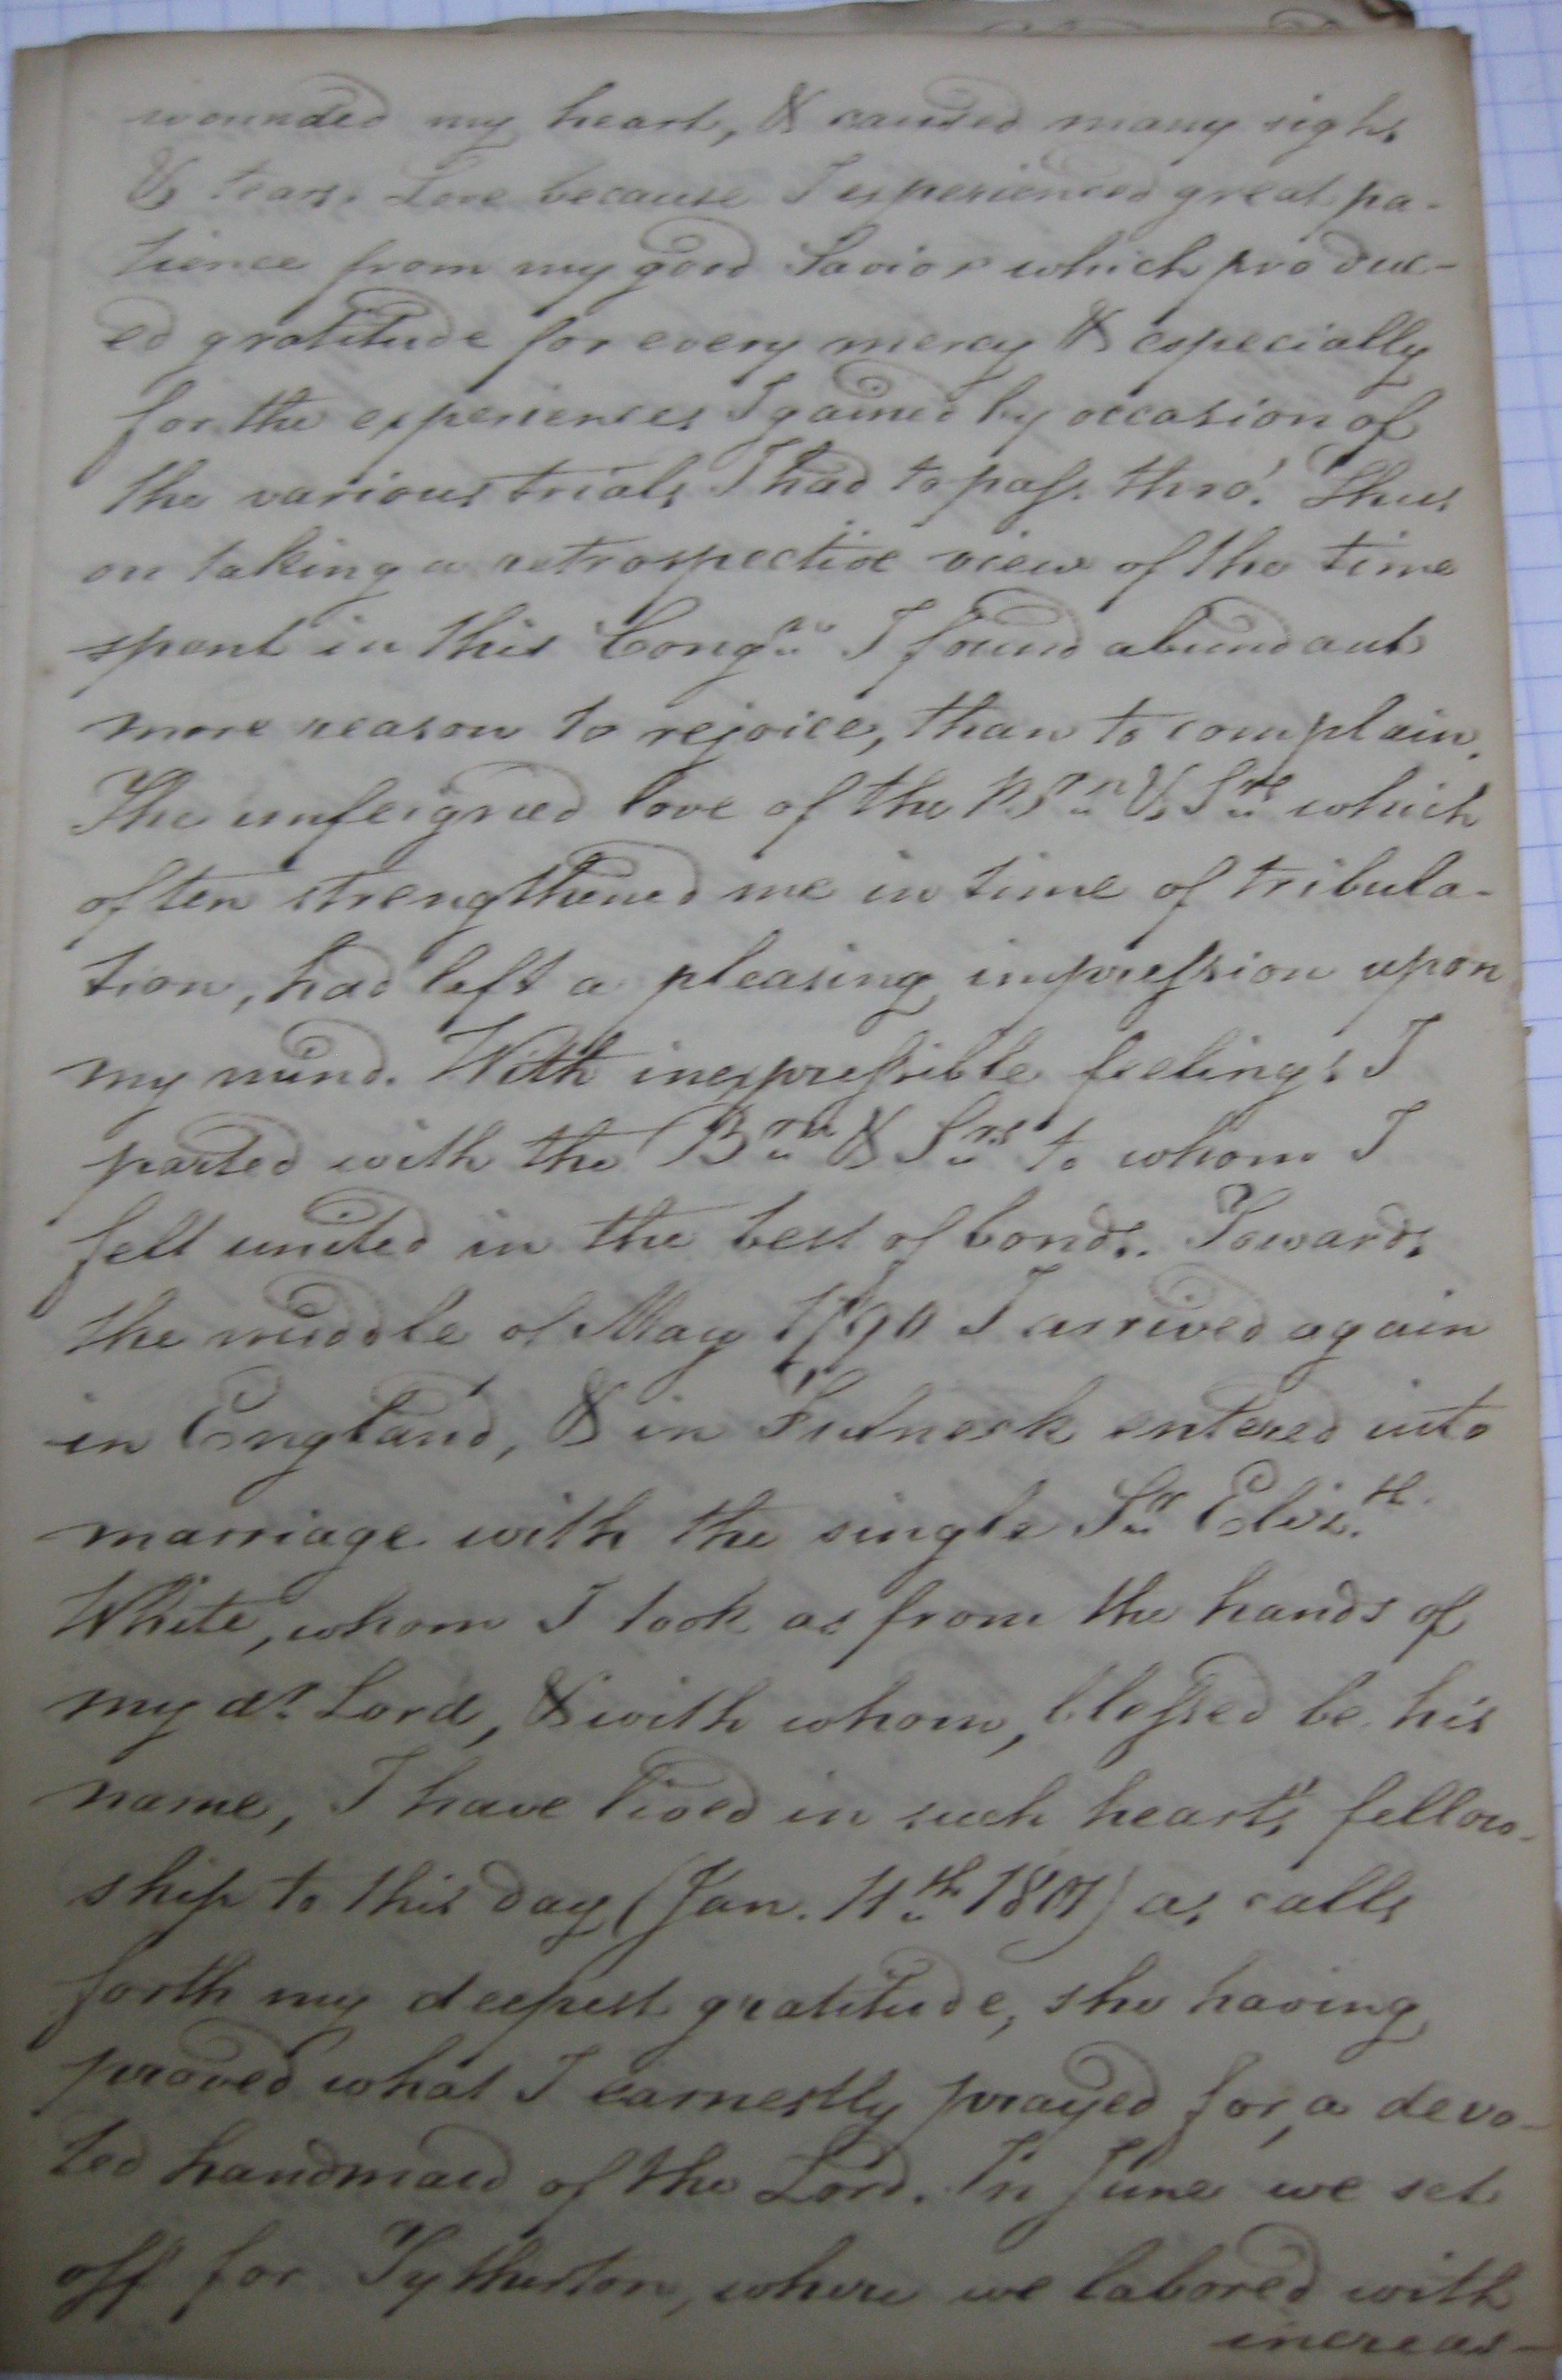 wounded my heart, & caused many sighs
& tears. Love because I experienced great pa-
tience from my good Savior which produc-
ed gratitude for every mercy & especially
for the experiences I gained by occasion of
the various trials I had to pass thro'. Thus
on taking a retrospective view of the time
spent in this Congn I found abundant
more reason to rejoice, than to complain.
The unfeigned love of the Brn & Srs which
often strengthened me in time of tribula-
tion, had left a pleasing impression upon
my mind. With inexpressible feelings I
parted with the Brn & Srs to whom I
felt united in the best of bonds. Towards
the middle of May 1790 I arrived again
in England, & in Fulneck entered into
marriage with the single Sr Elizth
White, whom I took as from the hands of
my dr Lord, & with whom, blessed be his
name, I have lived in such heart's fellow-
ship to this day (Jan. 11th 1801) as calls
forth my deepest gratitude, she having
proved what I earnestly prayed for, a devo-
ted handmaid of the Lord. In June we set
off for Tytherton, where we labored with
increas-